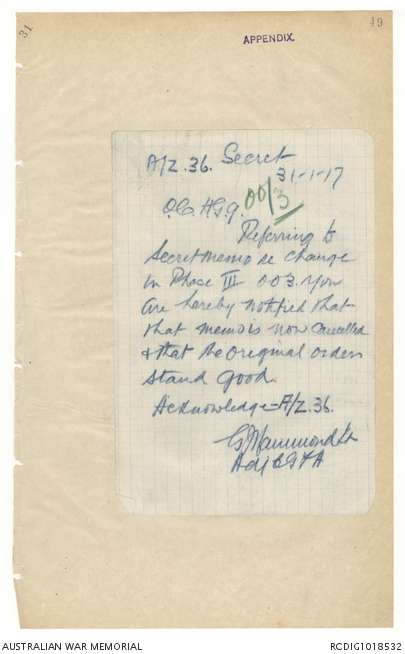 31
49
APPENDIX.
A/Z. 36. Secret
31-1-17
O.C. H.G.9. 00/3
Referring to
Secret memo re change
in Phase III 003. You
are hereby notified that
that memo is now cancelled
& that the original orders
stand good.
Acknowledge = A/Z. 36.
Hammond Lt
Adj
AUSTRALIAN WAR MEMORIAL
RCDIG1018532